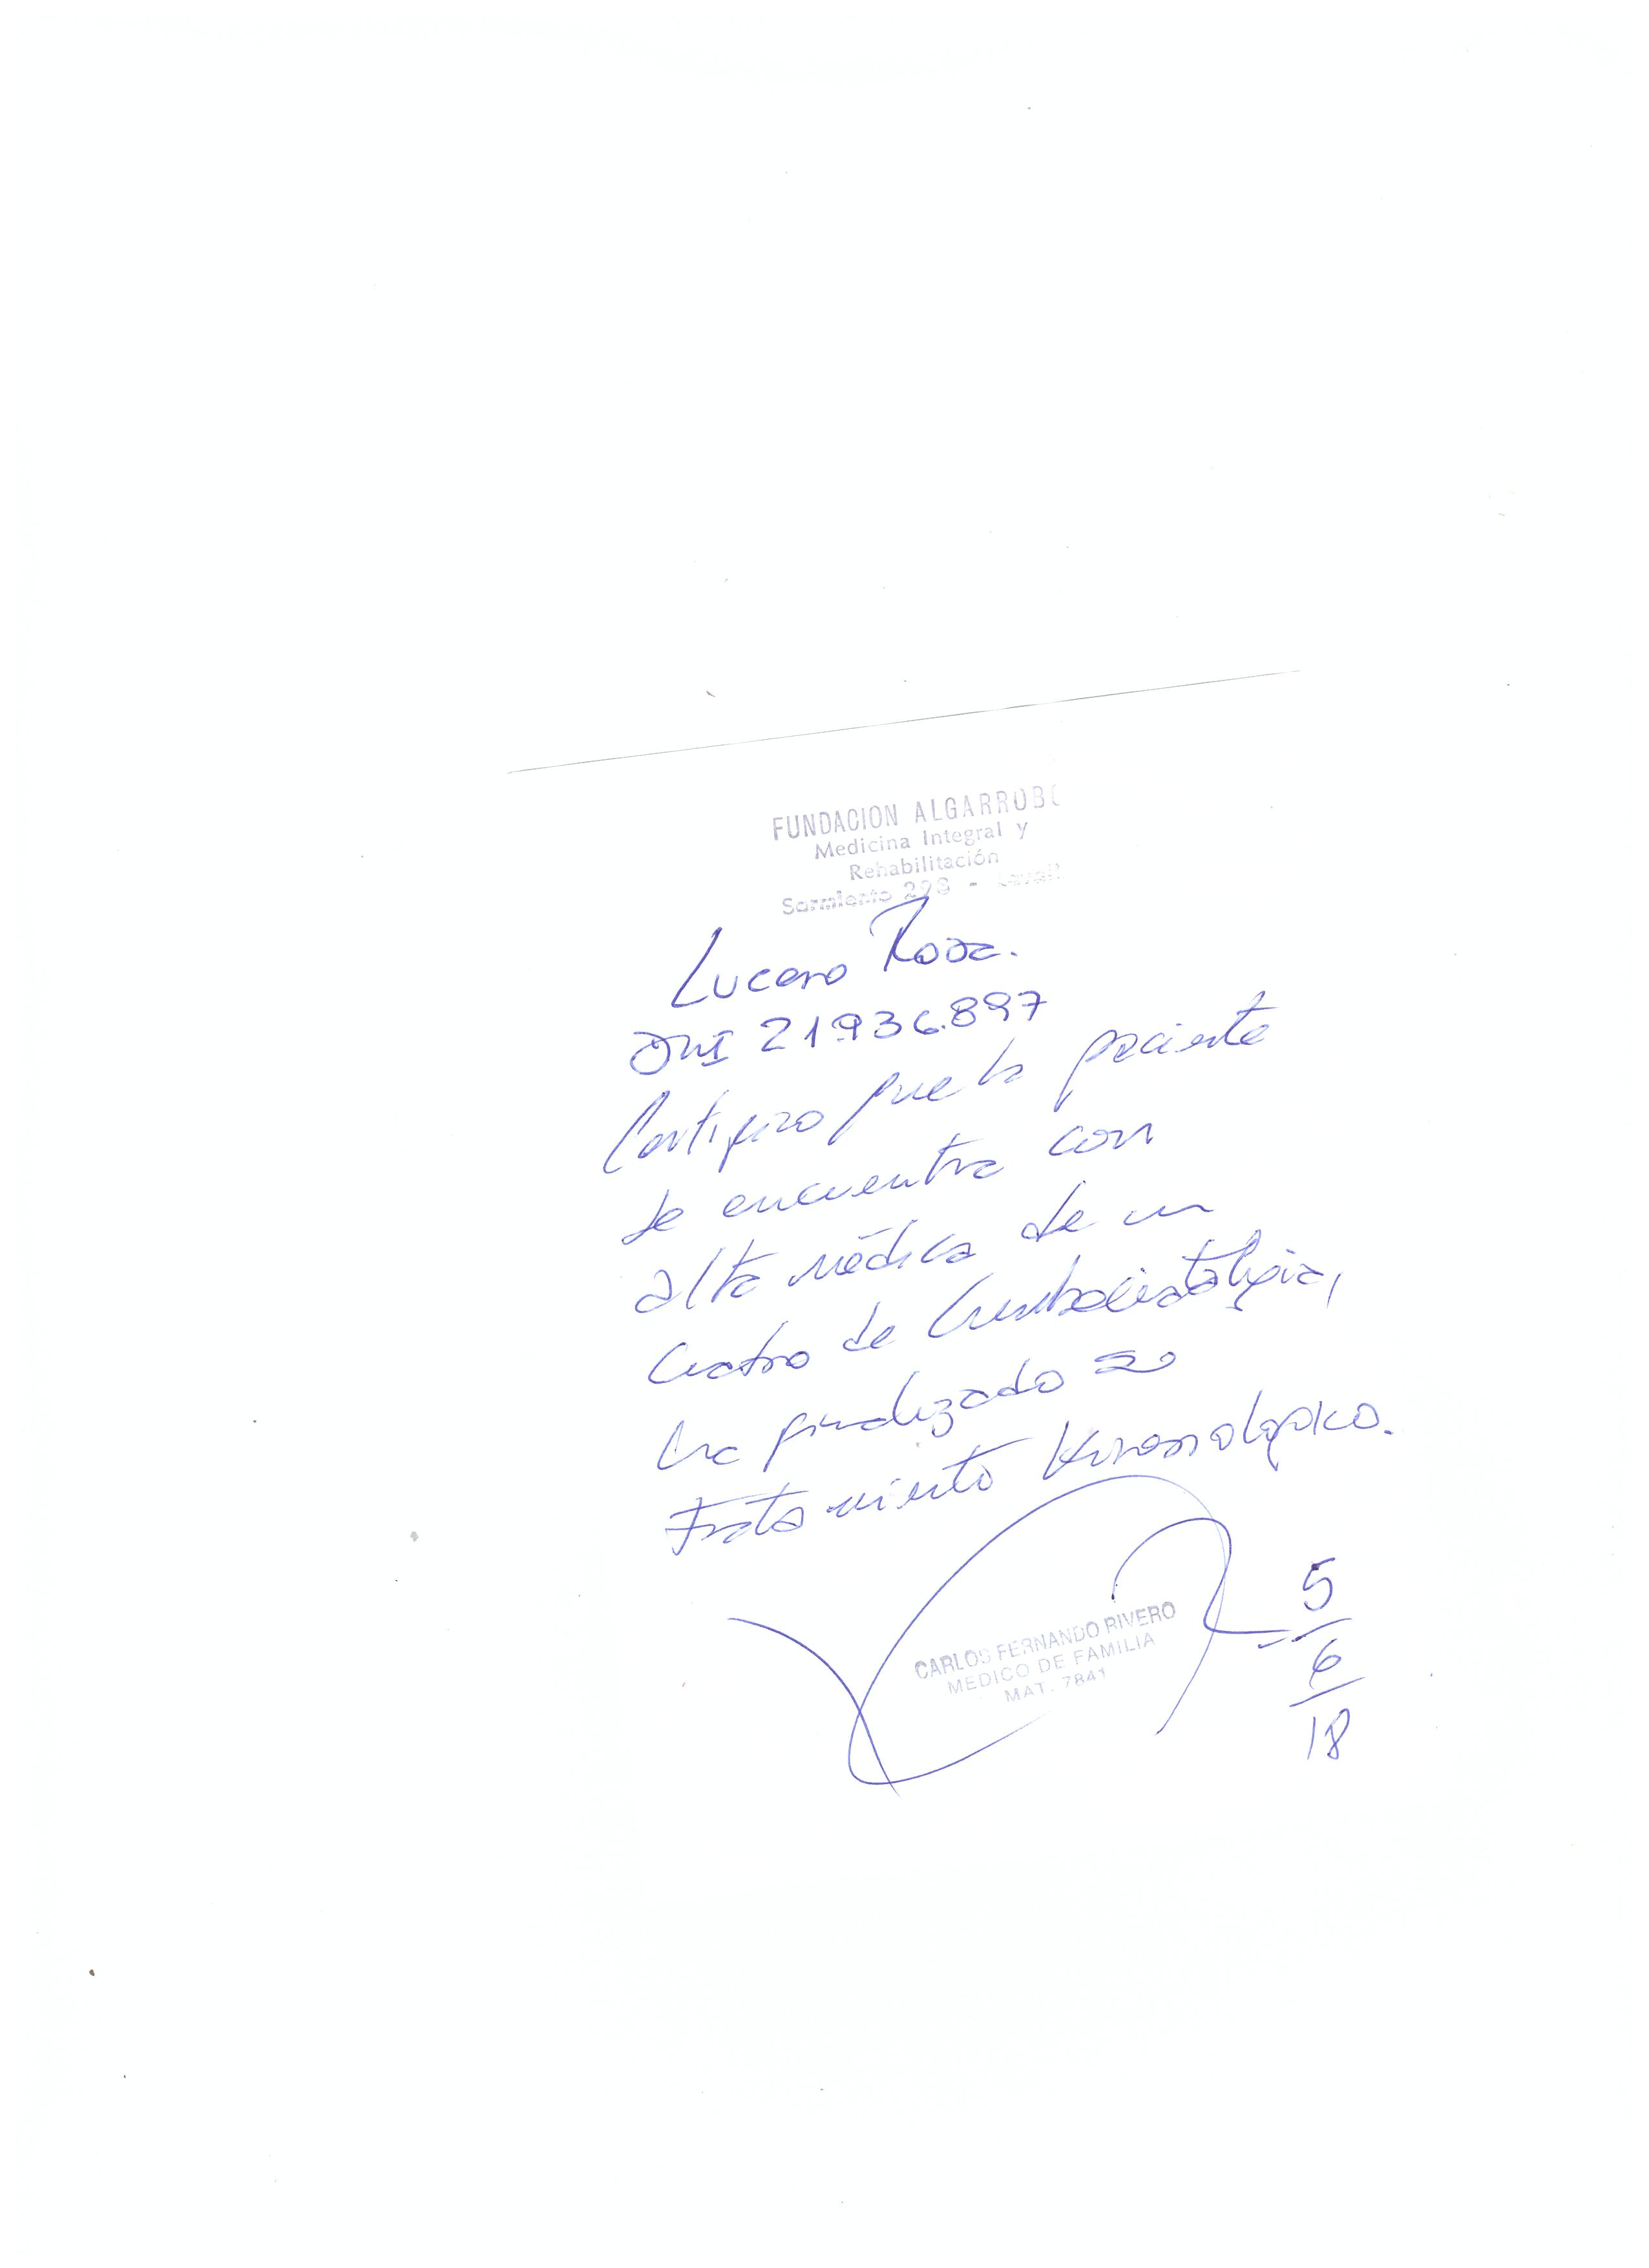 FUNDACION ALGARROBO
Medicina Integral y
Rehabilitación
Sarmiento 299 -
Lucero Rosa.
DNI 21.936.897
Certifico que la paciente
se encuentra con
alta médica de un
cuadro de Lumbociatalgia,
ha finalizado su
tratamiento Kinesiológico.
CARLOS FERNANDO RIVERO
MEDICO DE FAMILIA
MAT. 7841
5
6
18